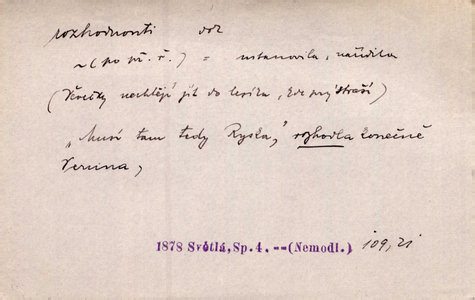 rozhodnouti dok
~ (po př. ř.) = ustanovila, nařídila
(Všecky nechtějí jít do lesíka, kde prý straší)
„Musí tam tedy Ryska," rozhodla konečně
Veruna,
1878 Světlá, Sp. 4. --(Nemodl.) 109,21